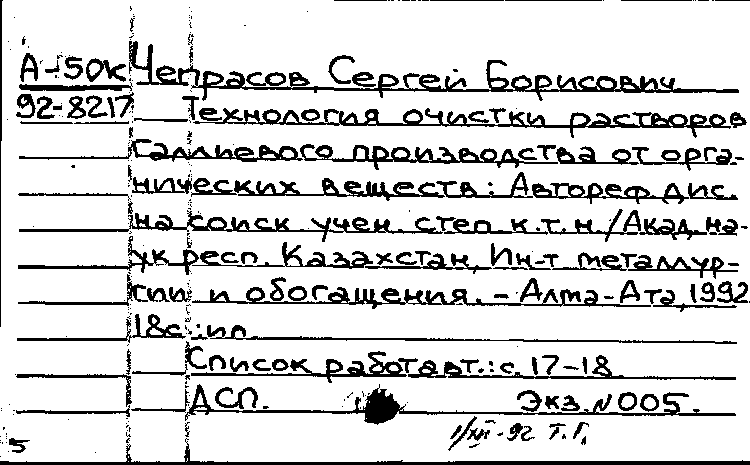 А-50К Чепрасов, Сергей Борисович
92-8217 Технология очистки растворов
галлиевого производства от орга-
нических веществ: Автореф. дис.
на соиск. учен. степ. к.т.н./Акад. на-
ук респ. Казахстан, Ин-т металлур-
гии и обогащения. – Алма-Ата, 1992
18с.: ил.
Список работ авт.: с. 17-18.
ДСП. Экз. № 005.
1/XII-92 Т.Г.
5